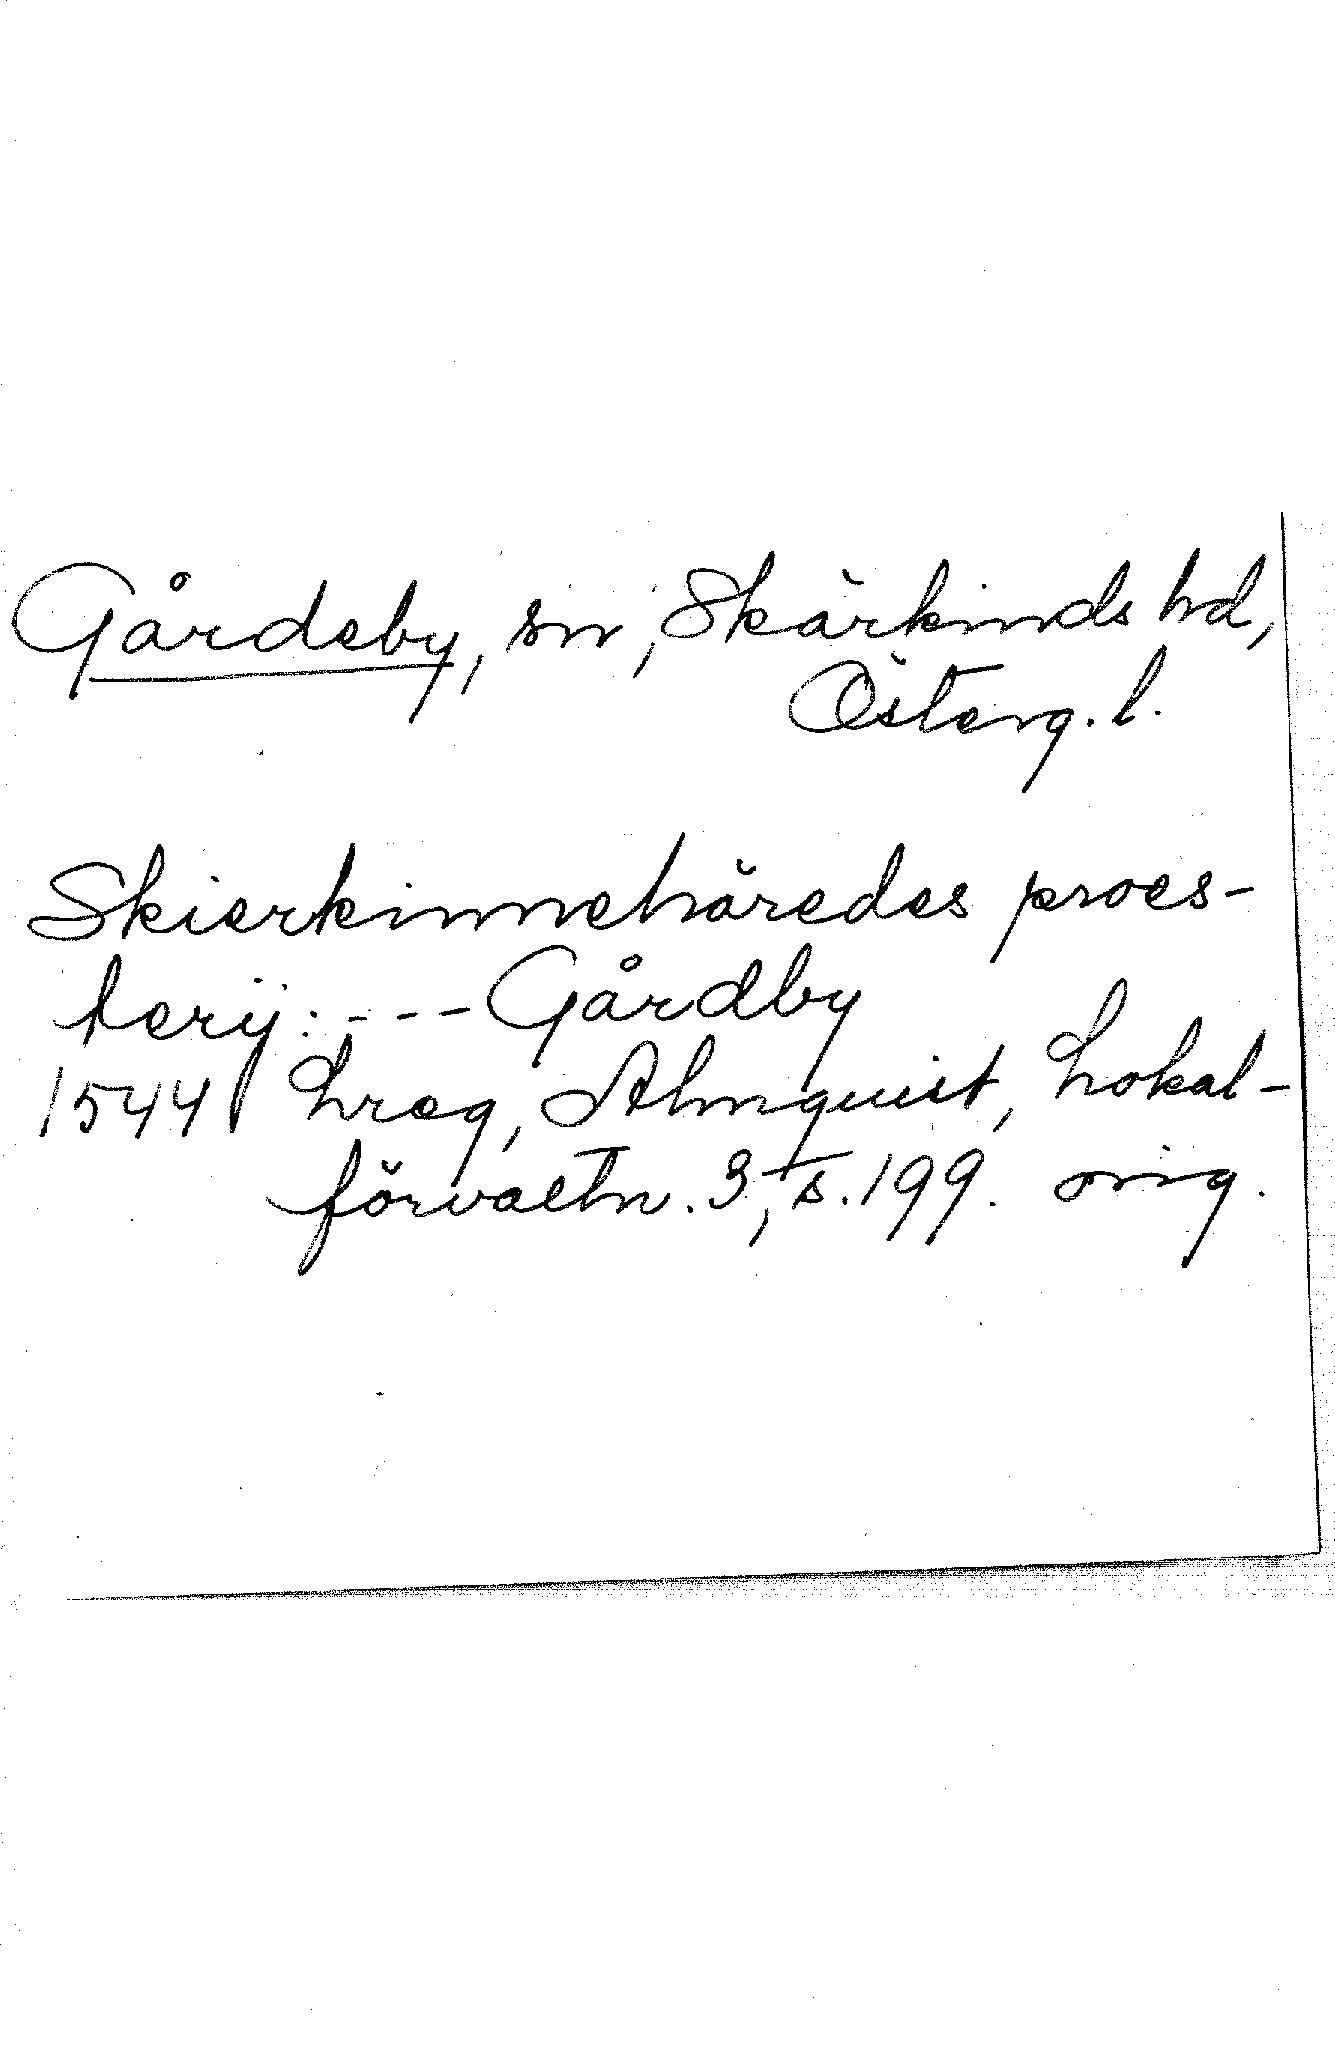 Gårdeby, sn, Skärkinds hd,
Österg. l.
Skierkinnehäredes proes-
terij: --- Gårdby
1544 Lreg, Almquist, Lokal-
förvaltn. 3, s. 199. orig.